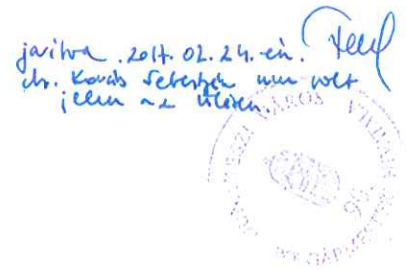 javítva. 2017. 02. 24.-én.
dr. Kovács Sebestyén nem volt
jelen az ülésen.